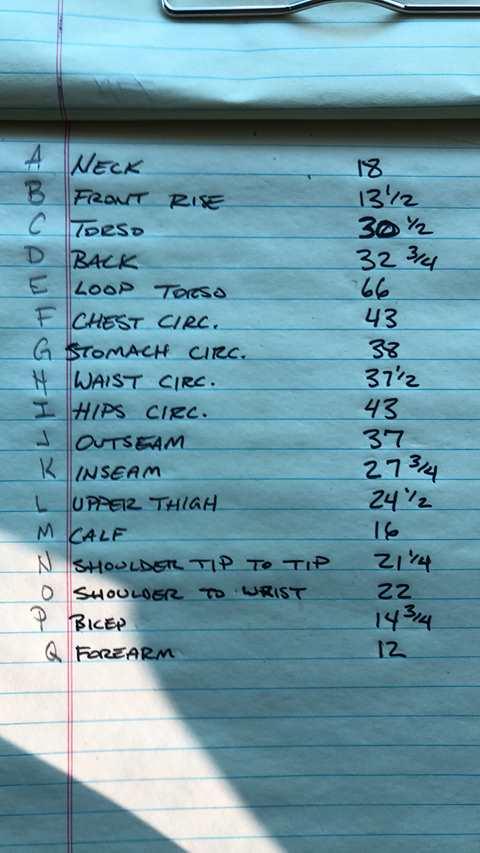 A NECK 18
B FRONT RISE 13 1/2
C TORSO 30 1/2
D BACK 32 3/4
E LOOP TORSO 66
F CHEST CIRC. 43
G STOMACH CIRC. 38
H WAIST CIRC. 37 1/2
I HIPS CIRC. 43
J OUTSEAM 37
K INSEAM 27 3/4
L UPPER THIGH 24 1/2
M CALF 16
N SHOULDER TIP TO TIP 21 1/4
O SHOULDER TO WRIST 22
P BICEP 14 3/4
Q FOREARM 12